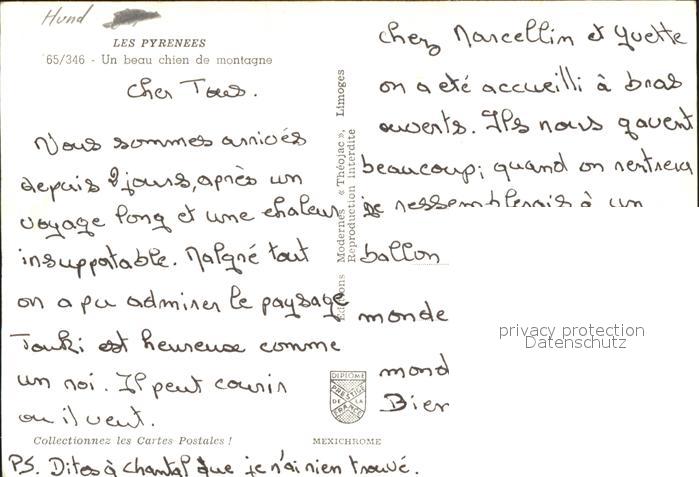 Hund
LES PYRENEES
65/346 - Un beau chien de montagne
Cher Tous.
Nous sommes arrivés
depuis 2 jours, après un
voyage long et une chaleur
insupportable. Malgré tout
on a pu admirer le paysage
Touki est heureuse comme
un roi. Il peut courir
ou il veut.
Collectionnez les Cartes Postales !
PS. Dites à chantal que je n'ai rien trouvé.
Editions Modernes « Théojac », Limoges
Reproduction Interdite
DIPLOME
PRESTIGE
DE LA
FRANCE
MEXICHROME
chez Marcellin et Yvette
on a été accueilli à bras
ouverts. Ils nous gavent
beaucoup; quand on rentrera
je ressemblerais à un
ballon
monde
mond
Bien
privacy protection
Datenschutz